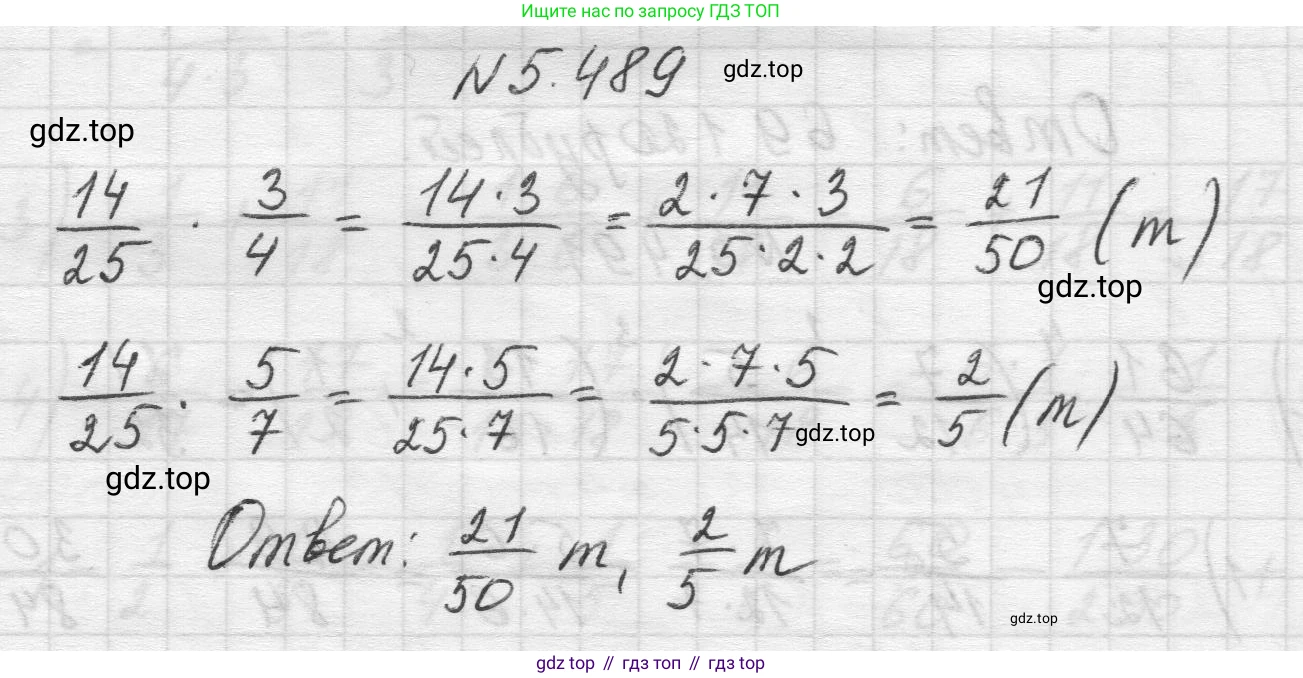 Ищите нас по запросу ГДЗ ТОП
N 5.489 gdz.top
gdz.top
14/25 · 3/4 = 14·3/25·4 = 2·7·3/25·2·2 = 21/50 (т)
gdz.top
14/25 · 5/7 = 14·5/25·7 = 2·7·5/5·5·7 = 2/5 (т)
gdz.top
gdz.top
Ответ: 21/50 т, 2/5 т
gdz.top
gdz top // гдз топ // gdz top